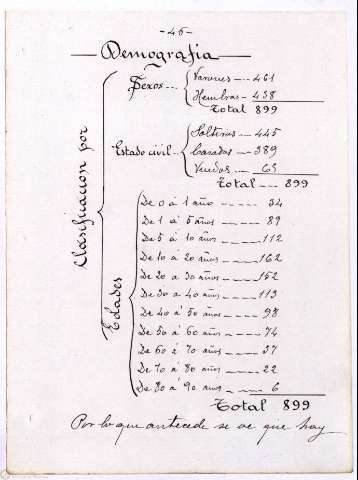 -46-
Demografia
Clasificacion por
Sexos
Varones 461
Hembras 438
Total 899
Estado civil
Solteros 445
Casados 389
Viudos 65
Total 899
Edades
De 0 á 1 año 34
De 1 á 5 años 89
De 5 á 10 años 112
De 10 a 20 años 162
De 20 a 30 años 152
De 30 a 40 años 113
De 40 á 50 años 98
De 50 á 60 años 74
De 60 á 70 años 37
De 70 á 80 años 22
De 80 á 90 años 6
Total 899
Por lo que antecede se ve que hay